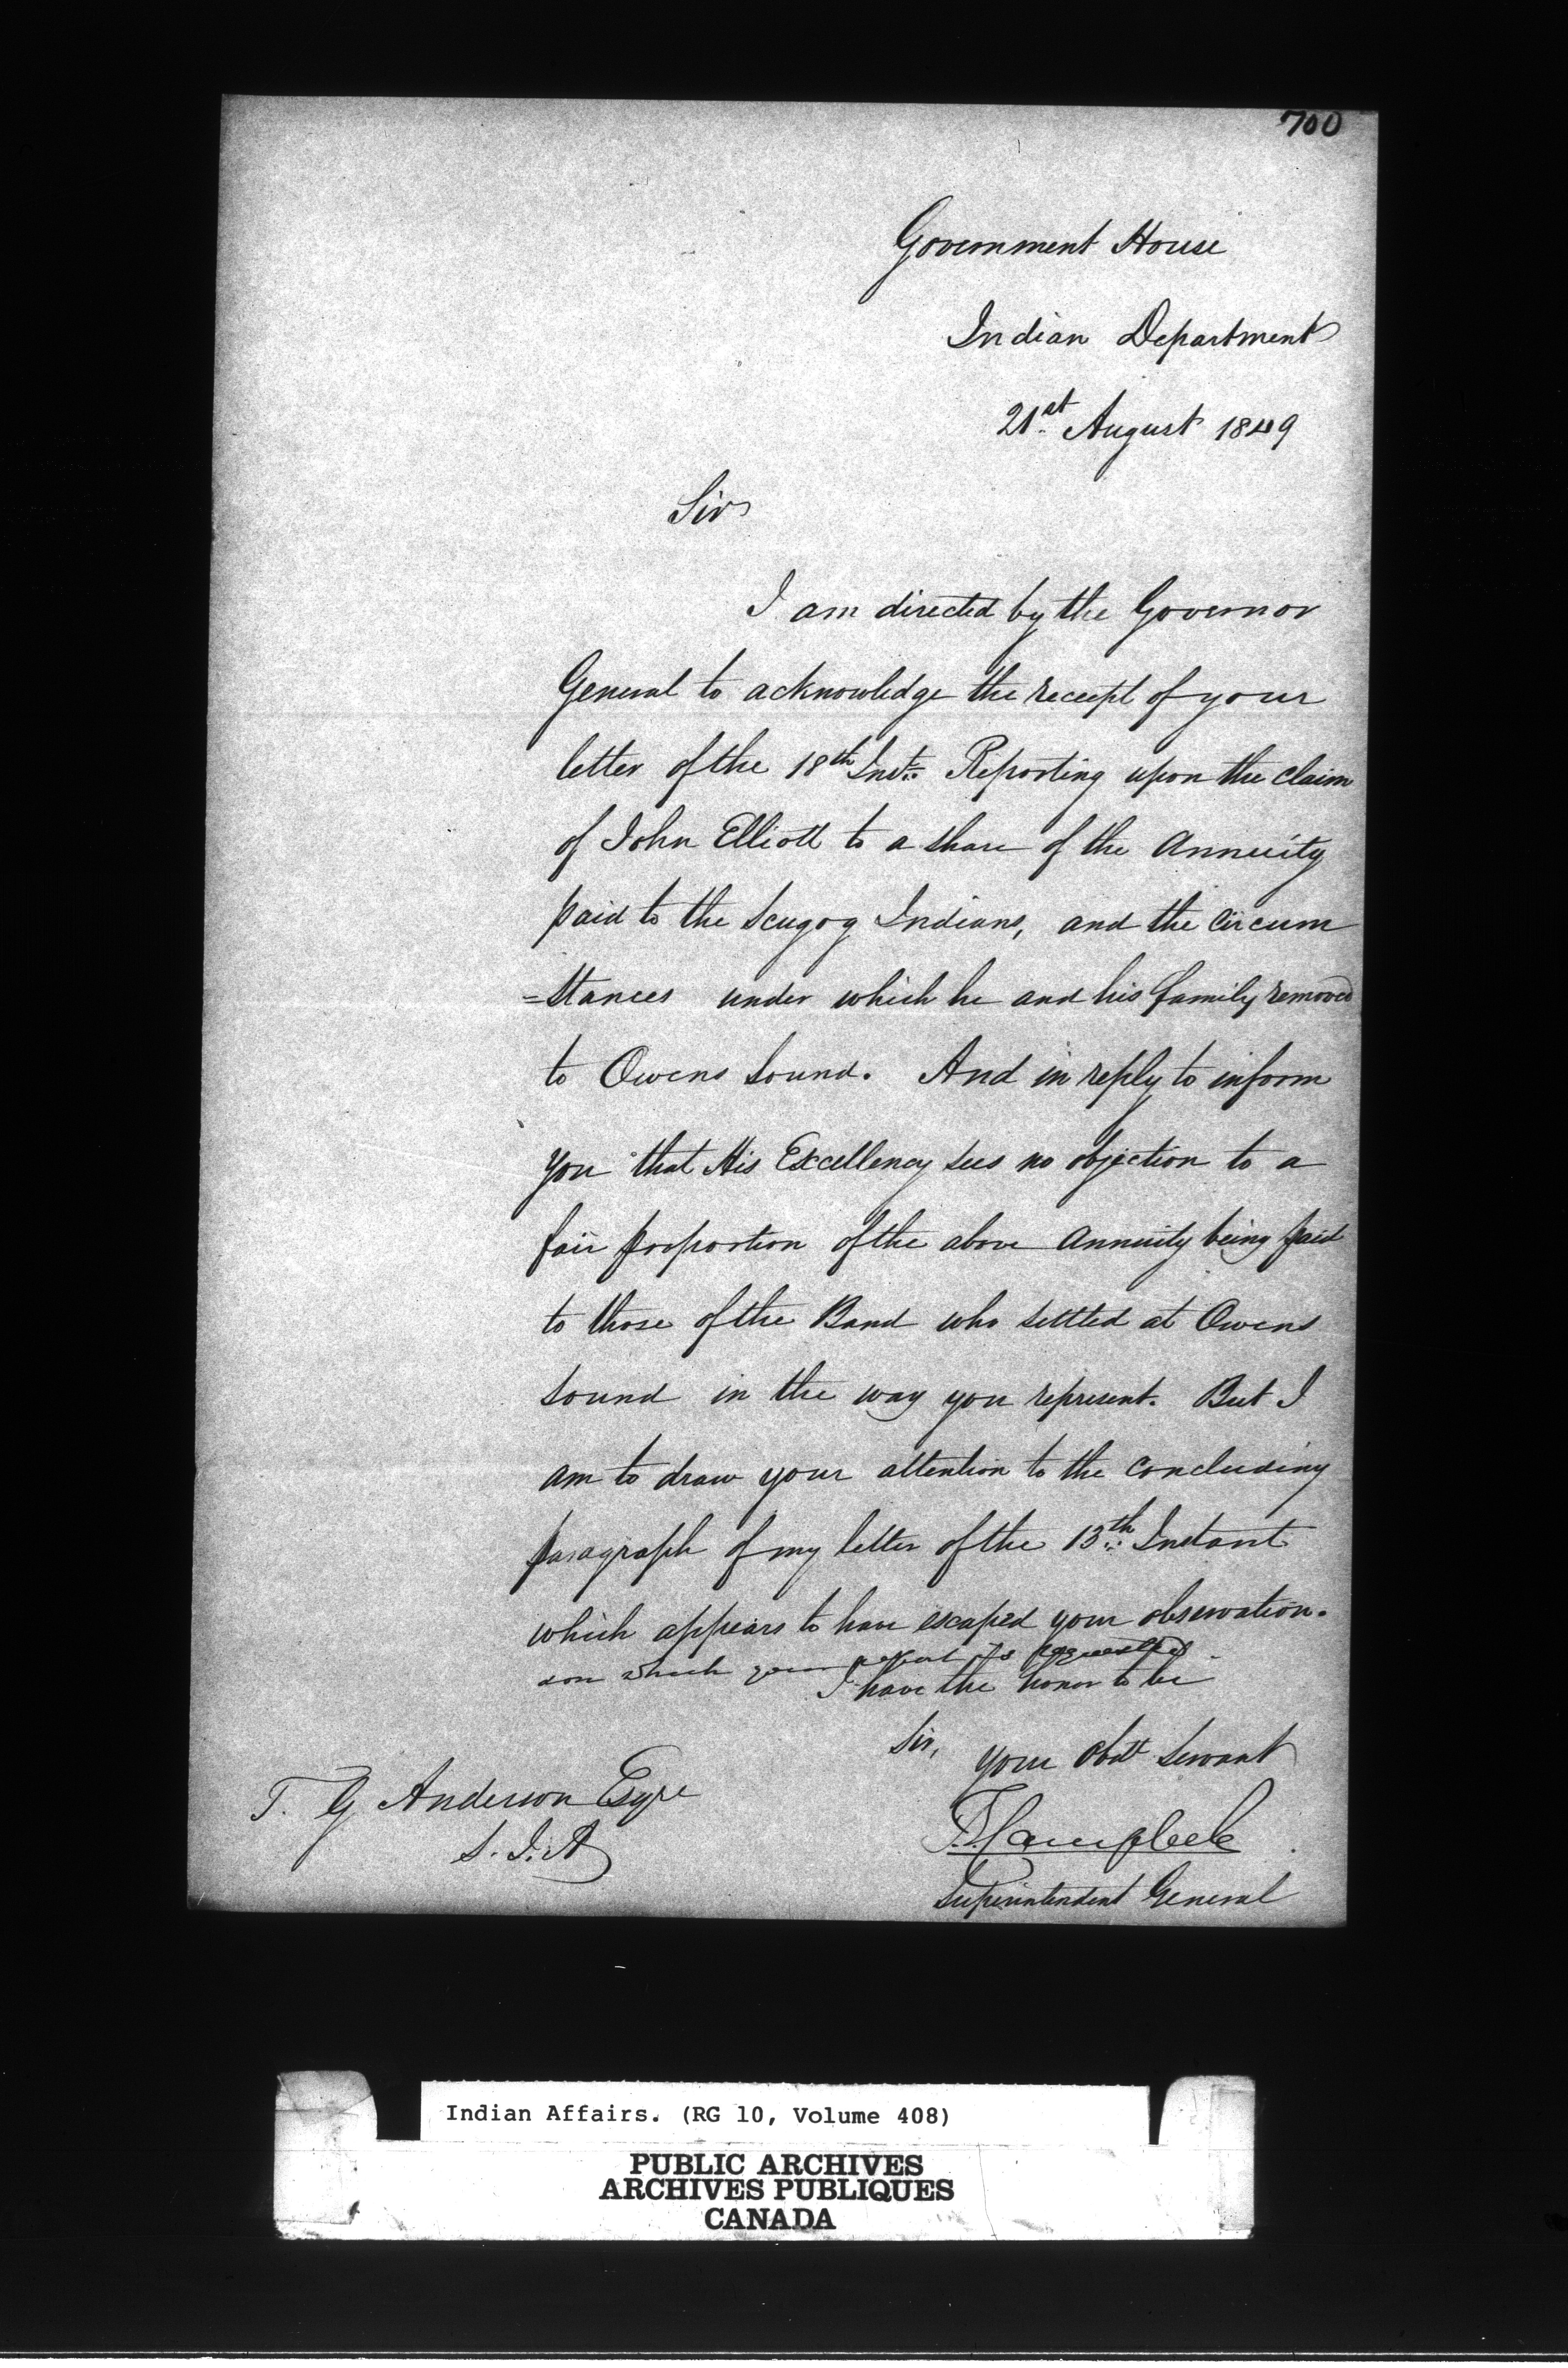 700
Government House
Indian Department
21st August 1849
Sir
I am directed by the Governor
General to acknowledge the receipt of your
letter of the 18th Inst. Reporting upon the claim
of John Elliott to a share of the Annuity
paid to the Scugog Indians, and the Circum
=stances under which he and his family removed
to Owens Sound. And in reply to inform
you that His Excellency sees no objection to a
fair proportion of the above Annuity being paid
to those of the Band who settled at Owens
Sound in the way you represent. But I
am to draw your attention to the concluding
paragraph of my letter of the 13th Instant
which appears to have escaped your observation.
on which your report is requested.
I have the honor to be
Sir, your Obdt Servant
T. G Anderson Esqre
S. I. A
T. Campbell
Superintendent General
Indian Affairs. (RG 10, Volume 408)
PUBLIC ARCHIVES
ARCHIVES PUBLIQUES
CANADA